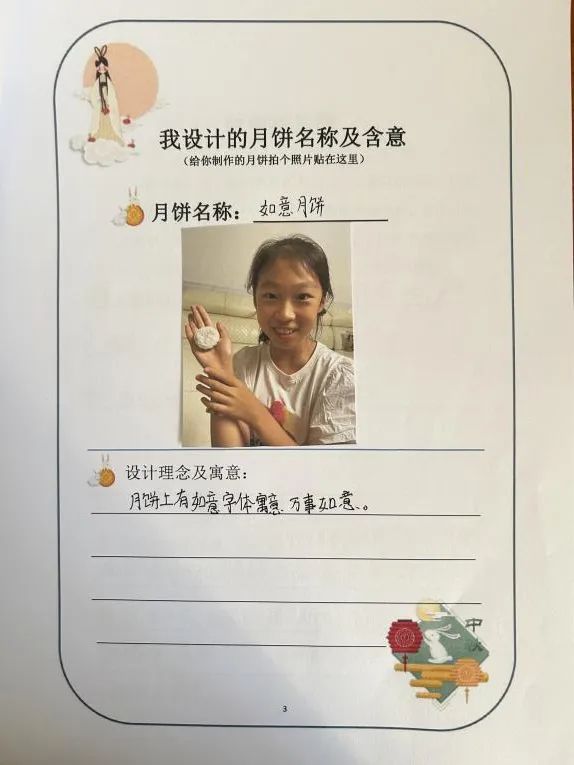 我设计的月饼名称及含意
（给你制作的月饼拍个照片贴在这里）
月饼名称：如意月饼
设计理念及寓意：
月饼上有如意字体寓意万事如意。
中秋
3